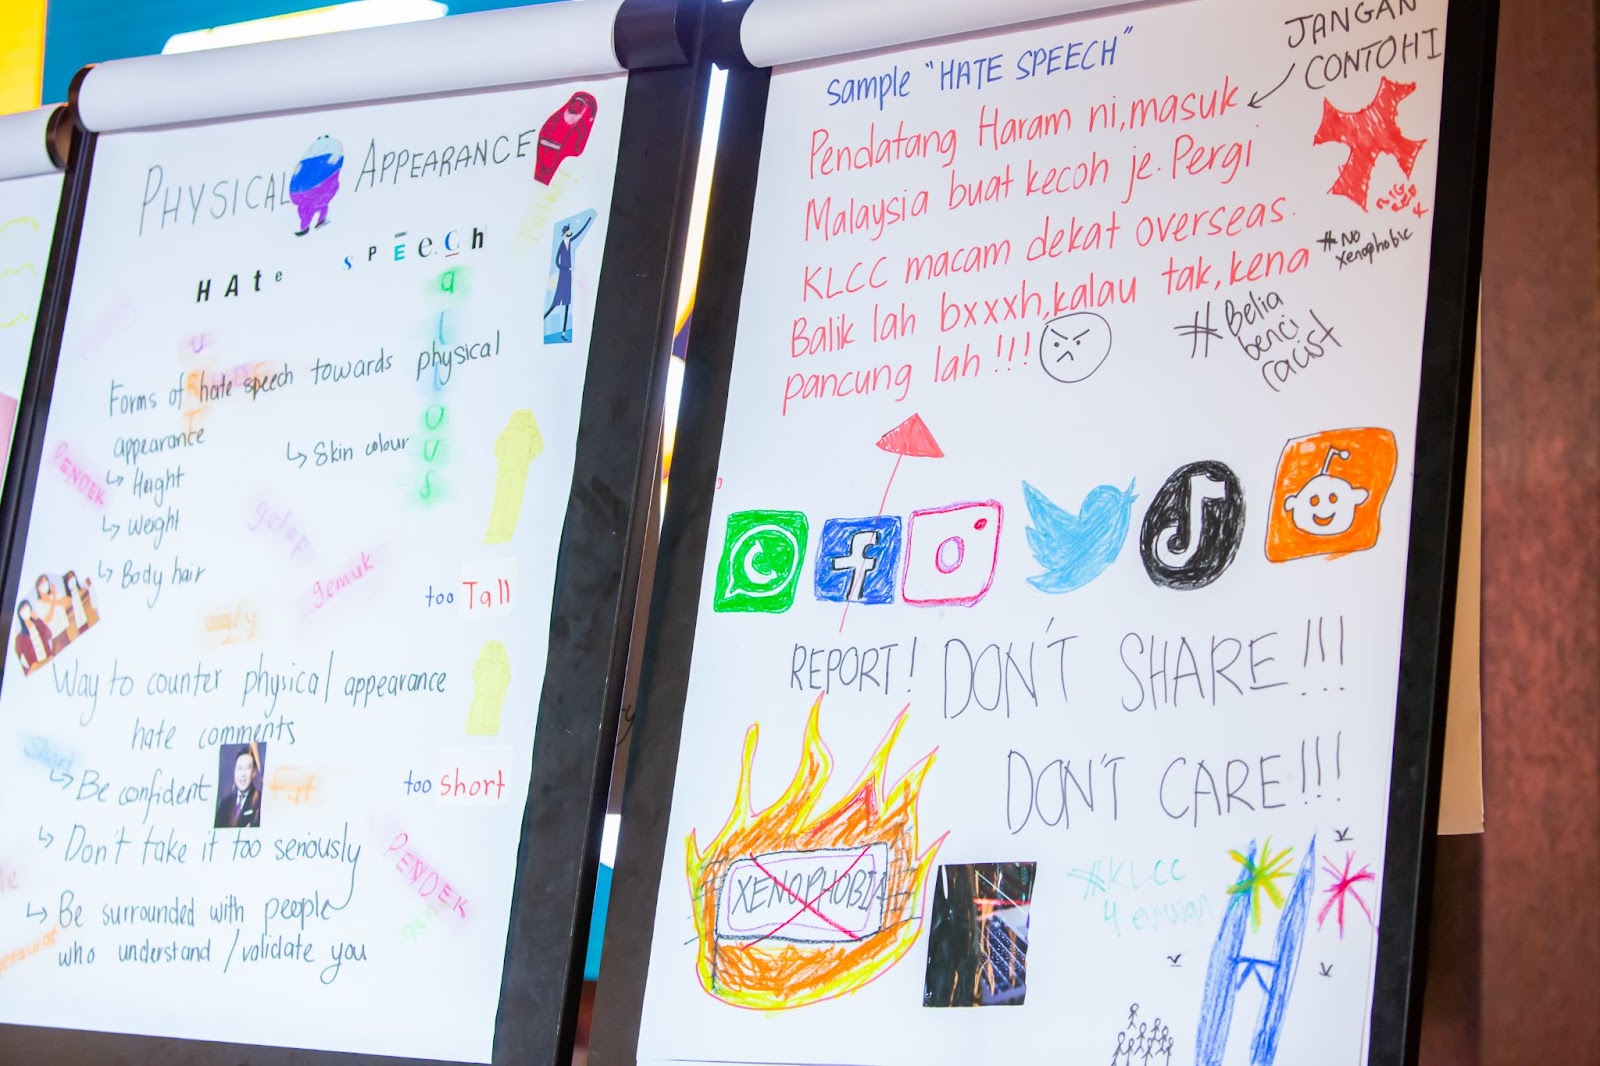 PHYSICAL APPEARANCE
HAte SPĒĒCh
Forms of hate speech towards physical
appearance
↳ Height
↳ Skin colour
↳ Weight
↳ Body hair
PENDEK
gelap
gemuk
ugly
too Tall
Way to counter physical appearance
hate comments
short
↳ Be confident
Fat
too short
↳ Don't take it too seriously
PENDEK
↳ Be surrounded with people
who understand / validate you
sample "HATE SPEECH"
JANGAN
CONTOHI
Pendatang Haram ni, masuk
Malaysia buat kecoh je. Pergi
KLCC macam dekat overseas.
Balik lah bxxxh, kalau tak, kena
pancung lah!!!
#No
Xenophobic
#Belia
benci
racist
REPORT! DON'T SHARE!!!
DON'T CARE!!!
XENOPHOBIA
#KLCC
4